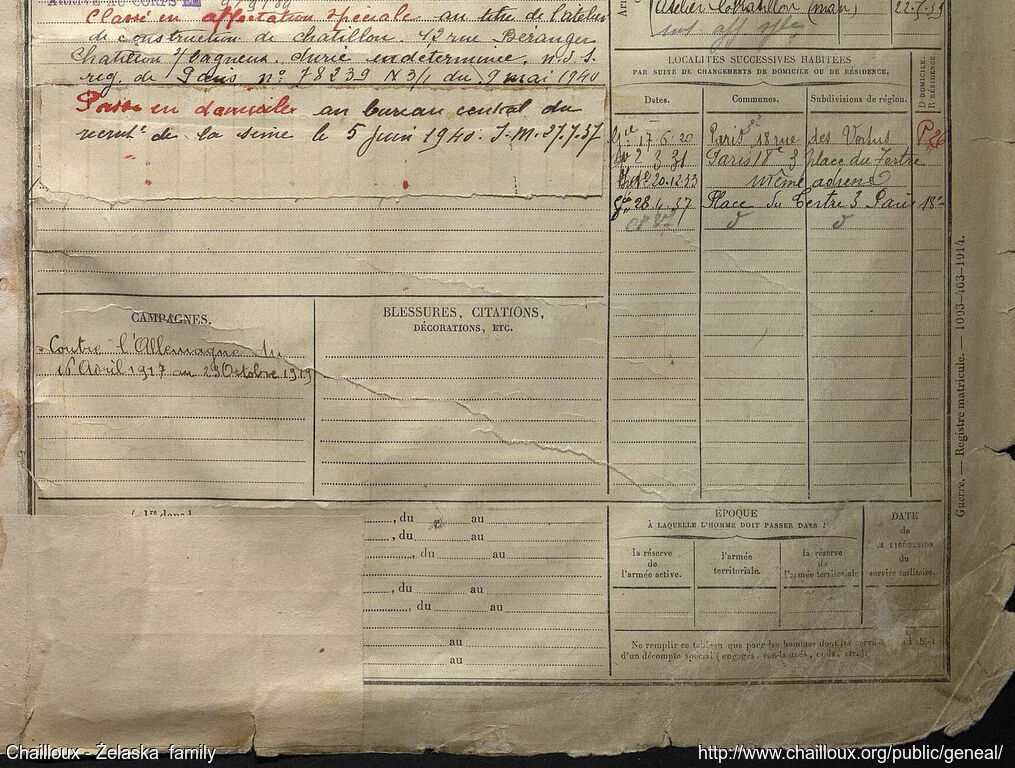 ARRIVÉ AU CORPS LE
Classé en affectation spéciale au titre de l'atelier
de construction de chatillon. 42 rue Béranger
Chatillon s/bagneux durée indéterminée. n.d.s.
reg. de Paris n° 78239 N 3/1 du 9 mai 1940
Passé en domicile au bureau central du
recrut^t de la seine le 5 juin 1940. I.M. 27.7.37
22-5-39
LOCALITÉS SUCCESSIVES HABITÉES
PAR SUITE DE CHANGEMENTS DE DOMICILE OU DE RÉSIDENCE.
D DOMICILE.
R RÉSIDENCE
Dates.
Communes.
Subdivisions de région.
17 6 20 Paris 18 rue des Vertus
2 3 31 Paris 18e 3 place du Tertre
20-12-33 même adresse
28 4 37 Place du Tertre 3 Paris 18e
CAMPAGNES.
Contre l'Allemagne du
16 Avril 1917 au 23 Octobre 1919
BLESSURES, CITATIONS,
DÉCORATIONS, ETC.
, du au
, du au
, du au
, du au
, du au
au
au
ÉPOQUE
À LAQUELLE L'HOMME DOIT PASSER DANS :
la réserve
de
l'armée active.
l'armée
territoriale.
la réserve
de
l'armée territoriale
DATE
de
LA LIBÉRATION
du
service militaire.
Ne remplir ce tableau que pour les hommes dont les services
d'un décompte spécial (engagés, condamnés, exilés, etc.).
Guerre. — Registre matricule. — 1093-463-1914.
Chailloux - Żelaska family
http://www.chailloux.org/public/geneal/